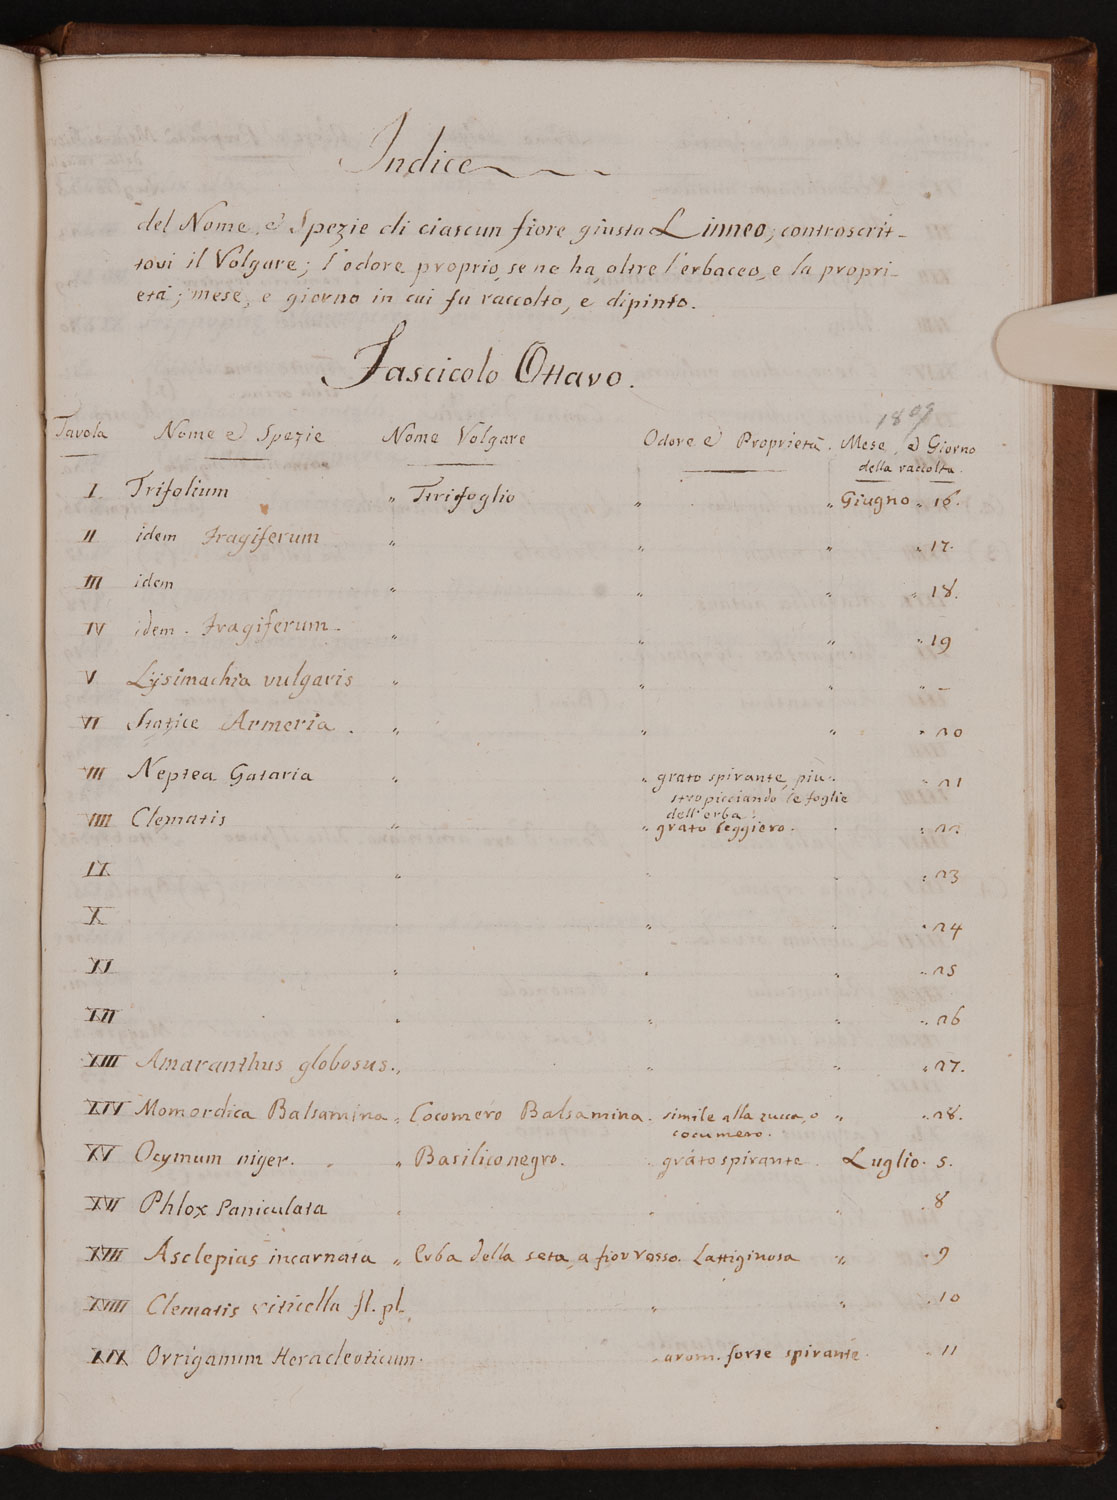 Indice
del Nome, e Spezie di ciascun fiore giusta Linneo; controscrit-
tovi il Volgare; l'odore proprio, se ne ha, oltre l'erbaceo, e la propri-
età; mese, e giorno in cui fu raccolto, e dipinto.
Fascicolo Ottavo.
1809
Tavola Nome e Spezie Nome Volgare Odore e Proprietà. Mese, e Giorno
della raccolta.
I Trifolium " Trifoglio " " Giugno " 16.
II idem Fragiferum " " " " 17.
III idem " " " " 18.
IV idem. Fragiferum " " " " 19
V Lysimachia vulgaris " " " " –
VI Statice Armeria. " " " " 20
VII Neptea Gataria " " grato spirante, più " 21
stropicciando le foglie
dell'erba.
VIII Clematis " " grato leggiero. " 22
IX " " " 23
X " " 24
XI " " " " 25
XII " " " " 26
XIII Amaranthus globosus. " " " " 27.
XIV Momordica Balsamina " Cocomero Balsamina. simile alla zucca, o " " 28.
cocumero.
XV Ocymum niger. " Basilico negro. grato spirante. Luglio. 5.
XVI Phlox Paniculata " " " 8
XVII Asclepias incarnata " Erba della seta, a fior rosso. Lattiginosa " " 9
XVIII Clematis viticella fl. pl. " " " 10
XIX Orrigamum Heracleoticum. arom. forte spirante. " 11